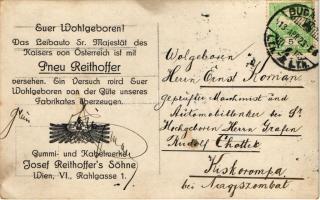 Euer Wohlgeboren!
Das Leibauto Sr. Majestät des
Kaisers von Österreich ist mit
Pneu Reithoffer
versehen. Ein Versuch wird Euer
Wohlgeboren von der Güte unseres
Fabrikates überzeugen.
Gummi- und Kabelwerke
Josef Reithoffer's Söhne
Wien, VI., Rahlgasse 1.
Wolgeboren
Herrn Ernst
geprüfter Maschinist und
Automobillenker bei Sr
Hochgeboren Herrn Grafen
Rudolf Chottek
Kiskorompa
bei Nagyszombat